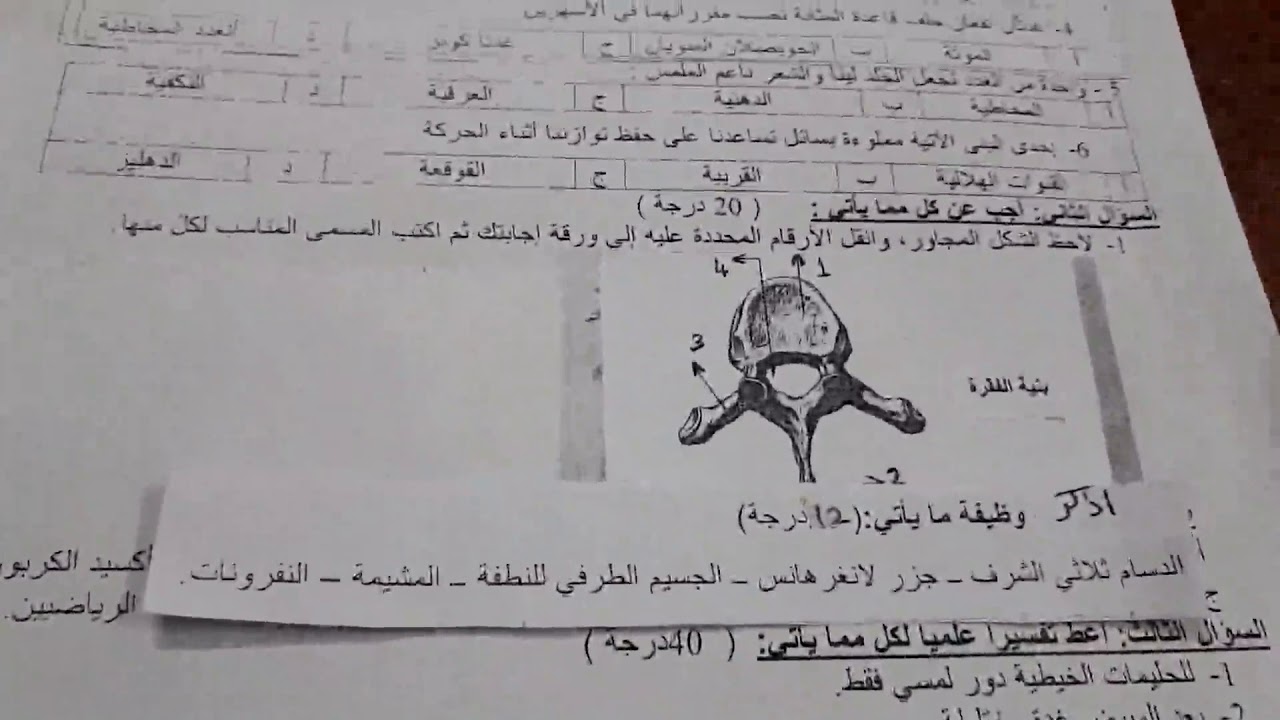 4- غدتان تقعان خلف قاعدة المثانة تصب مفرزاتهما في الأسهرين
أ الموثة ب الحويصلان المنويان ج غدتا كوبر د الغدد المخاطية
5- واحدة من الغدد تجعل الجلد ليناً والشعر ناعم الملمس :
أ المخاطية ب الدهنية ج العرقية د النكفية
6- إحدى البنى الآتية مملوءة بسائل تساعدنا على حفظ توازننا أثناء الحركة
أ القنوات الهلالية ب القريبة ج القوقعة د الدهليز
السؤال الثاني: أجب عن كل مما يأتي : ( 20 درجة )
1- لاحظ الشكل المجاور، وانقل الأرقام المحددة عليه إلى ورقة إجابتك ثم اكتب المسمى المناسب لكل منها.
4 1
3
بنية الفقرة
2
اذكر وظيفة ما يأتي:(12 درجة)
الدسام ثلاثي الشرف – جزر لانغرهانس – الجسيم الطرفي للنطفة – المشيمة – النفرونات.
أكسيد الكربو
ج
الرياضيين.
السؤال الثالث: أعط تفسيراً علمياً لكل مما يأتي: ( 40درجة )
1- للحليمات الخيطية دور لمسي فقط.
2-